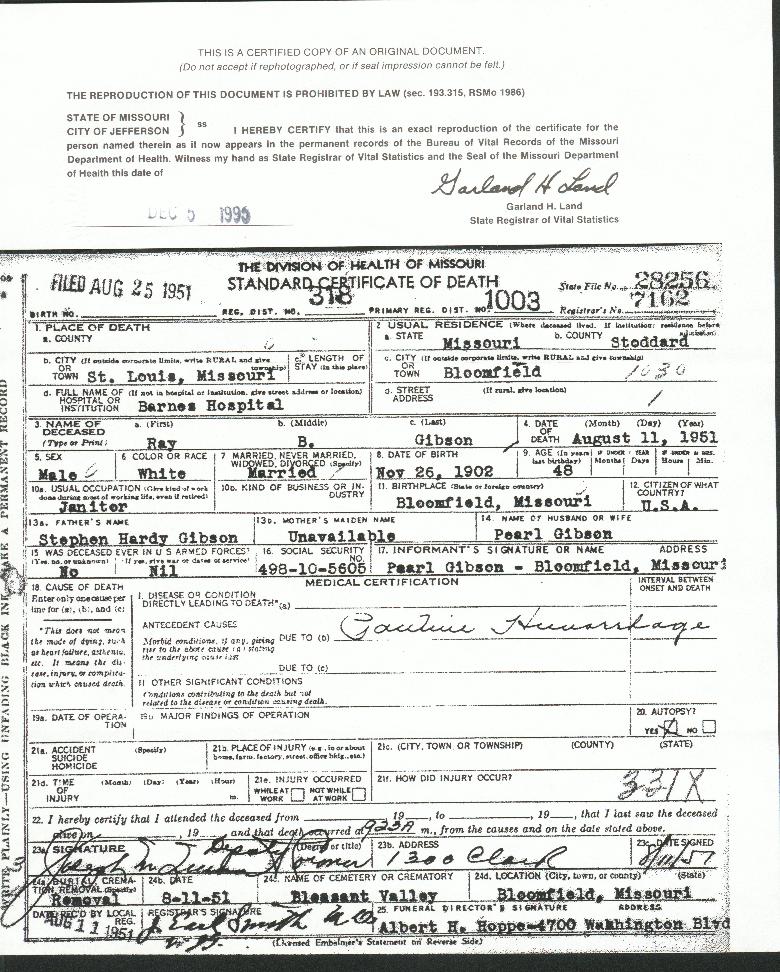 THIS IS A CERTIFIED COPY OF AN ORIGINAL DOCUMENT.
(Do not accept if rephotographed, or if seal impression cannot be felt.)
THE REPRODUCTION OF THIS DOCUMENT IS PROHIBITED BY LAW (sec. 193.315, RSMo 1986)
STATE OF MISSOURI
CITY OF JEFFERSON } ss I HEREBY CERTIFY that this is an exact reproduction of the certificate for the
person named therein as it now appears in the permanent records of the Bureau of Vital Records of the Missouri
Department of Health. Witness my hand as State Registrar of Vital Statistics and the Seal of the Missouri Department
of Health this date of
Garland H Land
Garland H. Land
State Registrar of Vital Statistics
DEC 5 1995
THE DIVISION OF HEALTH OF MISSOURI
FILED AUG 25 1951 STANDARD CERTIFICATE OF DEATH State File No. 28256
BIRTH NO. REG. DIST. NO. 318 PRIMARY REG. DIST. NO. 1003 Registrar's No. 7162
1. PLACE OF DEATH
a. COUNTY
2 USUAL RESIDENCE (Where deceased lived. If institution: residence before admission)
a. STATE Missouri b. COUNTY Stoddard
b. CITY (If outside corporate limits, write RURAL and give township) OR TOWN St. Louis, Missouri
c. LENGTH OF STAY (in this place)
c. CITY (If outside corporate limits, write RURAL and give township) OR TOWN Bloomfield 1030
d. FULL NAME OF (If not in hospital or institution, give street address or location) HOSPITAL OR INSTITUTION Barnes Hospital
d. STREET ADDRESS (If rural, give location)
3. NAME OF DECEASED (Type or Print) a. (First) Ray b. (Middle) B. c. (Last) Gibson
4. DATE OF DEATH (Month) (Day) (Year) August 11, 1951
5. SEX Male
6 COLOR OR RACE White
7 MARRIED, NEVER MARRIED, WIDOWED, DIVORCED (Specify) Married
8. DATE OF BIRTH Nov 26, 1902
9. AGE (In years last birthday) 48 IF UNDER 1 YEAR Months Days IF UNDER 24 HRS. Hours Min.
10a. USUAL OCCUPATION (Give kind of work done during most of working life, even if retired) Janitor
10b. KIND OF BUSINESS OR INDUSTRY
11. BIRTHPLACE (State or foreign country) Bloomfield, Missouri
12. CITIZEN OF WHAT COUNTRY? U.S.A.
13a. FATHER'S NAME Stephen Hardy Gibson
13b. MOTHER'S MAIDEN NAME Unavailable
14. NAME OF HUSBAND OR WIFE Pearl Gibson
15 WAS DECEASED EVER IN U S ARMED FORCES? (Yes, no, or unknown) (If yes, give war or dates of service) No Nil
16. SOCIAL SECURITY NO. 498-10-5605
17. INFORMANT'S SIGNATURE OR NAME ADDRESS
Pearl Gibson - Bloomfield, Missouri
18. CAUSE OF DEATH
Enter only one cause per line for (a), (b), and (c)
*This does not mean the mode of dying, such as heart failure, asthenia, etc. It means the disease, injury, or complication which caused death.
MEDICAL CERTIFICATION
INTERVAL BETWEEN ONSET AND DEATH
I. DISEASE OR CONDITION
DIRECTLY LEADING TO DEATH* (a)
ANTECEDENT CAUSES
Morbid conditions, if any, giving rise to the above cause (a) stating the underlying cause last
DUE TO (b) Pontine Hemorrhage
DUE TO (c)
II OTHER SIGNIFICANT CONDITIONS
Conditions contributing to the death but not
related to the disease or condition causing death.
19a. DATE OF OPERATION
19b MAJOR FINDINGS OF OPERATION
20. AUTOPSY?
YES NO
21a. ACCIDENT SUICIDE HOMICIDE (Specify)
21b. PLACE OF INJURY (e.g., in or about home, farm, factory, street, office bldg., etc.)
21c. (CITY, TOWN OR TOWNSHIP) (COUNTY) (STATE)
21d. TIME OF INJURY (Month) (Day) (Year) (Hour) m.
21e. INJURY OCCURRED WHILE AT WORK NOT WHILE AT WORK
21f. HOW DID INJURY OCCUR?
331X
22. I hereby certify that I attended the deceased from , 19 , to , 19 , that I last saw the deceased
alive on , 19 , and that death occurred at 933A m., from the causes and on the date stated above.
23a. SIGNATURE (Degree or title)
Deputy Coroner
23b. ADDRESS 1300 Clark
23c. DATE SIGNED 8/11/51
24a. BURIAL, CREMATION, REMOVAL (Specify) Removal
24b. DATE 8-11-51
24c. NAME OF CEMETERY OR CREMATORY Pleasant Valley
24d. LOCATION (City, town, or county) (State)
Bloomfield, Missouri
DATE REC'D BY LOCAL REG. AUG 11 1951
REGISTRAR'S SIGNATURE J. Earl Smith
25. FUNERAL DIRECTOR'S SIGNATURE ADDRESS
Albert H. Hoppe-4700 Washington Blvd
(Licensed Embalmer's Statement on Reverse Side)
WRITE PLAINLY—USING UNFADING BLACK INK MAKE A PERMANENT RECORD